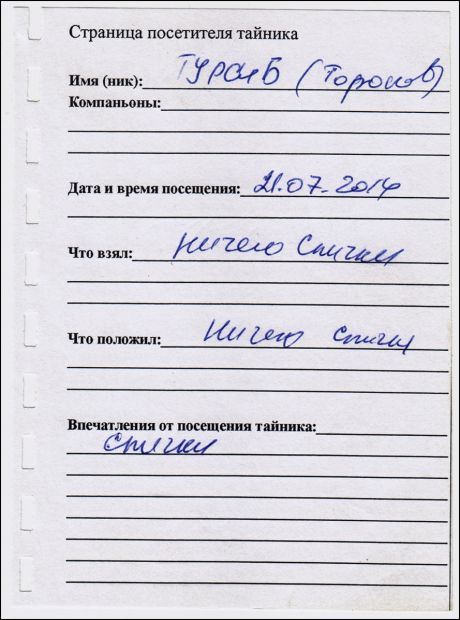 Страница посетителя тайника
Имя (ник): ТУРСИБ (Торопов)
Компаньоны:
Дата и время посещения: 21.07-2014
Что взял: ничего Спички
Что положил: Ничего спички
Впечатления от посещения тайника:
Спички